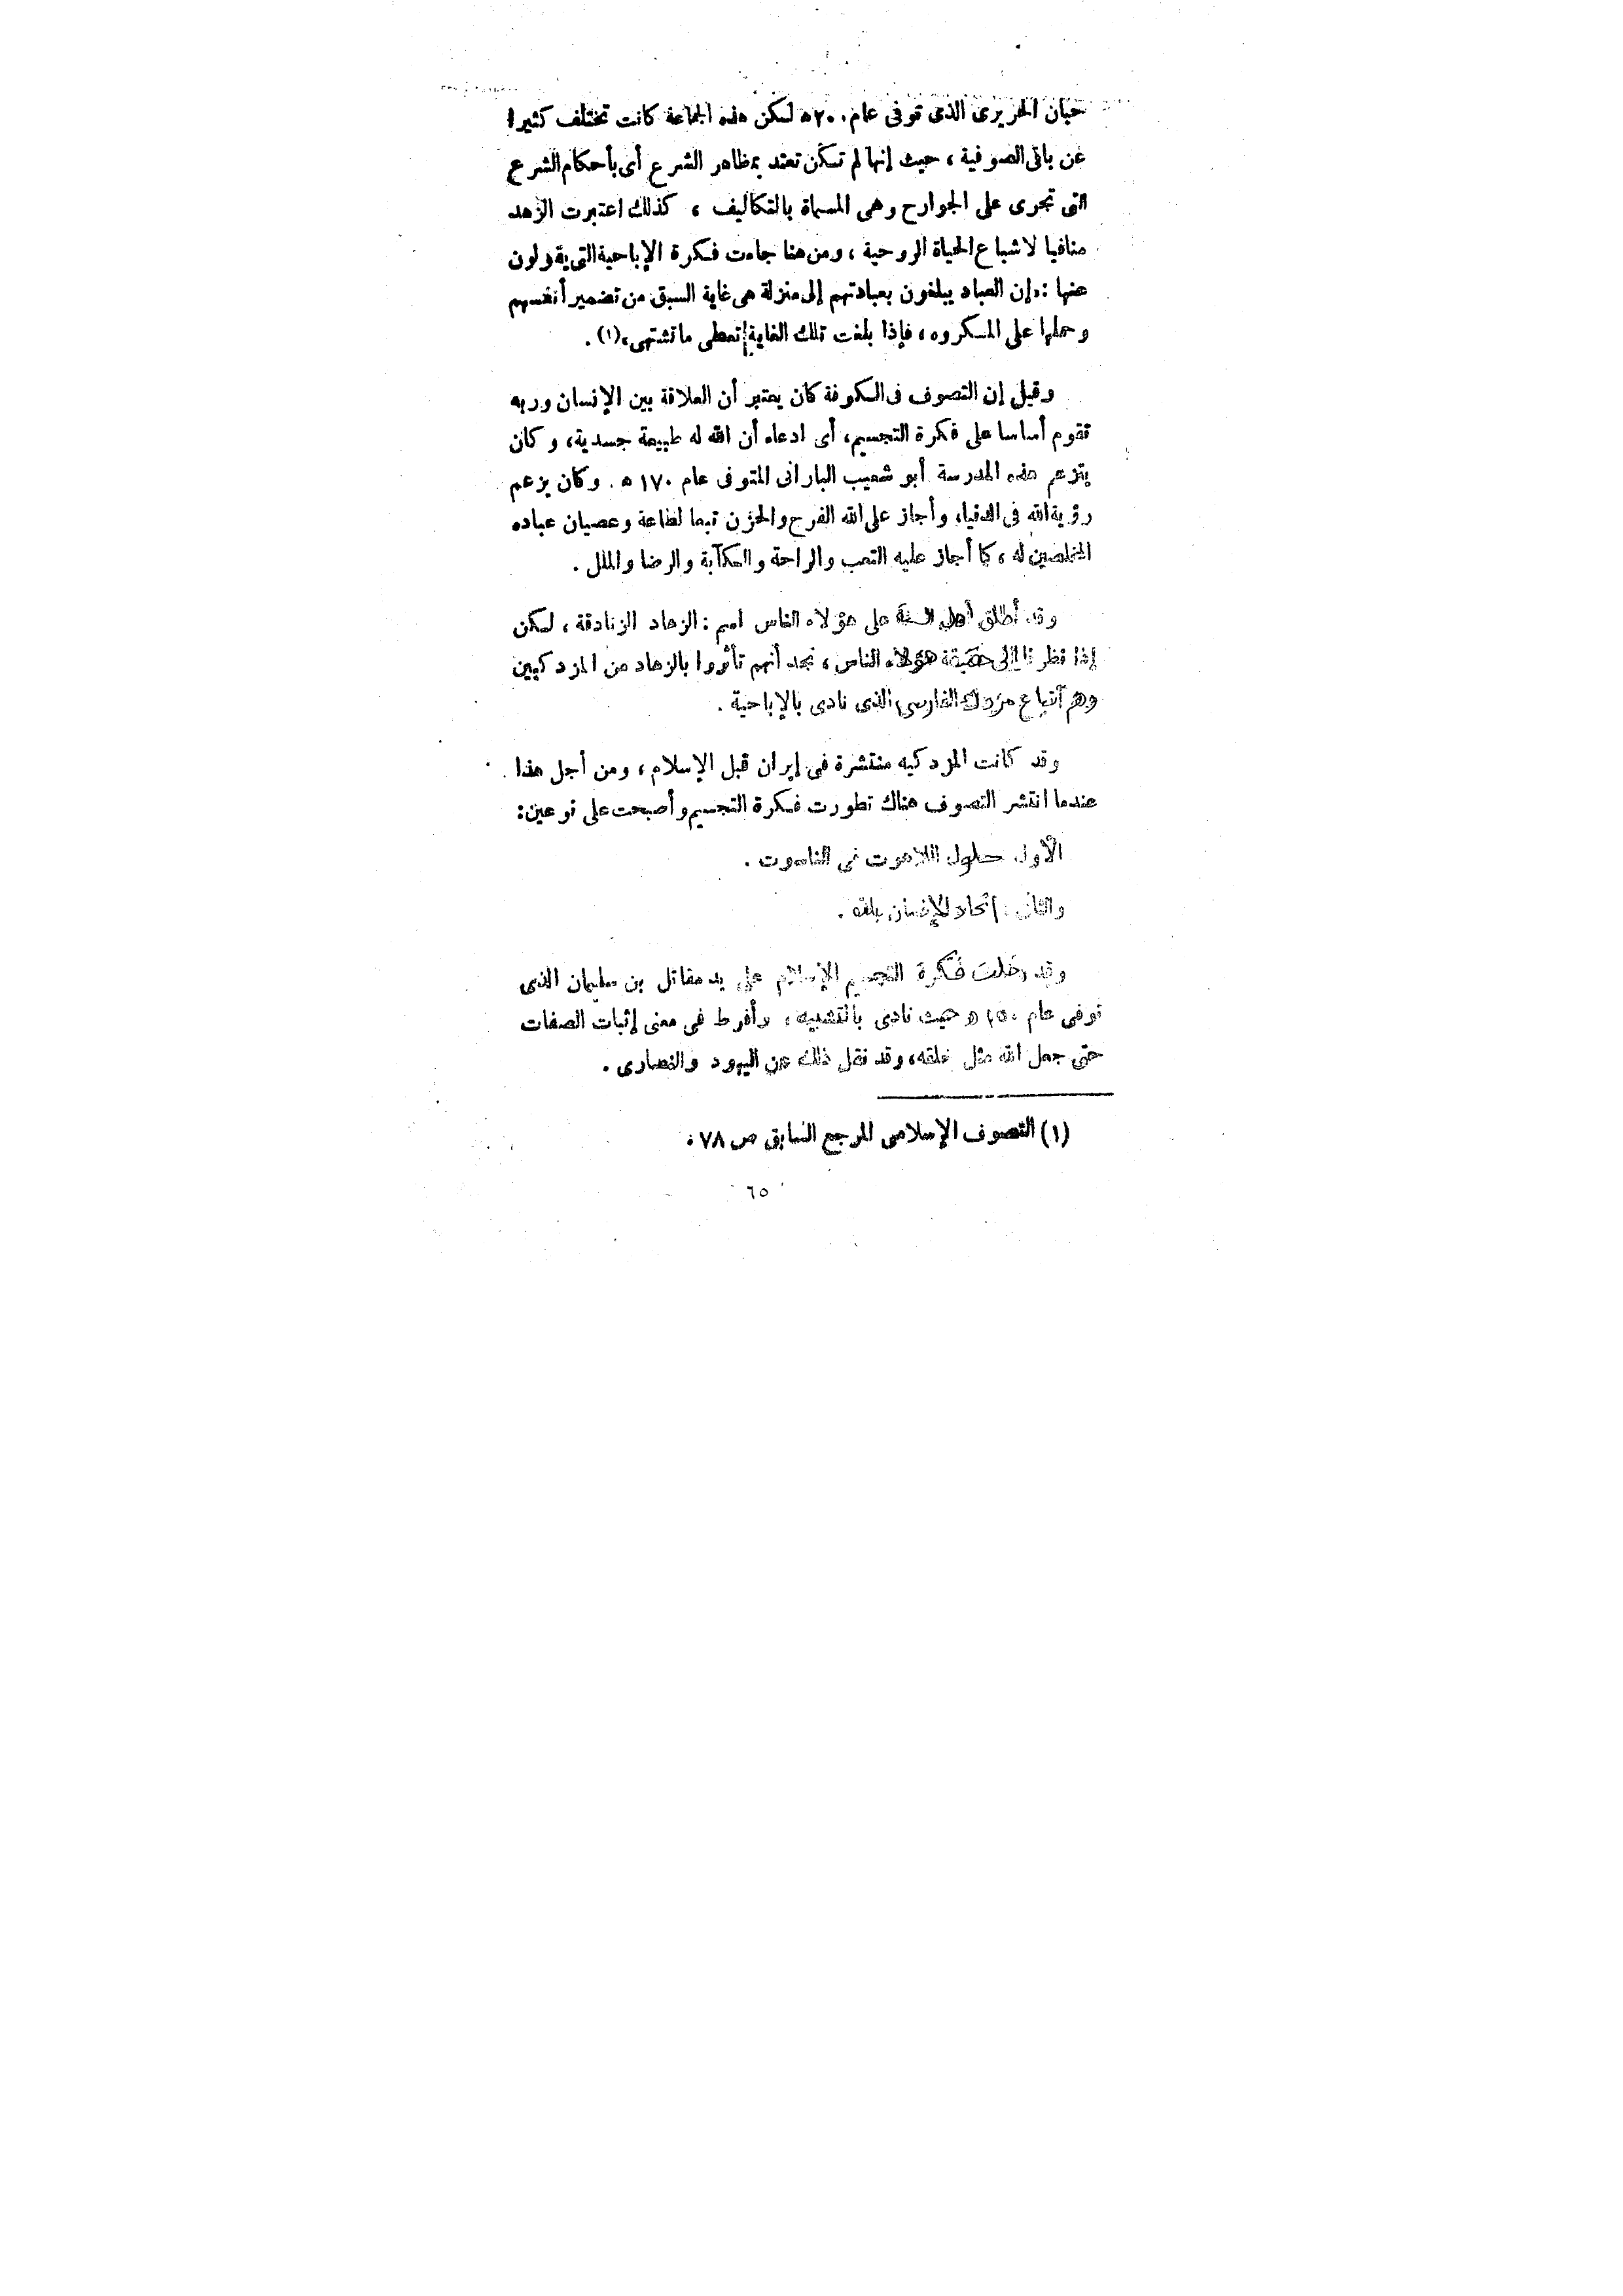 حبان الحريرى الذى توفى عام ٢٠٠ه لكن هذه الجماعة كانت تختلف كثيرا
عن باقى الصوفية ، حيث إنها لم تكن تعتد بمظاهر الشرع أى بأحكام الشرع
التى تجرى على الجوارح وهى المسماة بالتكاليف ، كذلك اعتبرت الزهد
منافيا لاشباع الحياة الروحية ، ومن هنا جاءت فكرة الإباحية التى يقولون
عنها : «إن العباد يبلغون بعبادتهم إلى منزلة هى غاية السبق من تضمير أنفسهم
وحملها على المكروه ، فإذا بلغت تلك الغاية تعطى ما تشتهى»(١) .
وقيل إن التصوف فى الكوفة كان يعتبر أن العلاقة بين الإنسان وربه
تقوم أساسا على فكرة التجسيم، أى ادعاء أن الله له طبيعة جسدية، وكان
يتزعم هذه المدرسة أبو شعيب البارانى المتوفى عام ١٧٠ ه . وكان يزعم
رؤية الله فى الدنيا، وأجاز على الله الفرح والحزن تبعا لطاعة وعصيان عباده
المخلصين له ، كما أجاز عليه التعب والراحة والكآبة والرضا والملل .
وقد أطلق أهل السنة على هؤلاء الناس اسم : الزهاد الزنادقة ، لكن
إذا نظرنا إلى حقيقة هؤلاء الناس ، نجد أنهم تأثروا بالزهاد من المزدكيين
وهم أتباع مزدك الفارسى الذى نادى بالإباحية .
وقد كانت المزدكيه منتشرة فى إيران قبل الإسلام ، ومن أجل هذا
عندما انتشر التصوف هناك تطورت فكرة التجسيم وأصبحت على نوعين :
الأول حلول اللاهوت فى الناسوت .
والثانى : اتحاد الإنسان بالله .
وقد دخلت فكرة التجسيم الإسلام على يد مقاتل بن سليمان الذى
توفى عام ١٥٠ ه حيث نادى بالتشبيه ، وأفرط فى معنى إثبات الصفات
حتى جعل الله مثل خلقه، وقد نقل ذلك عن اليهود والنصارى .
(١) التصوف الإسلامى المرجع السابق ص ٧٨ .
٦٥